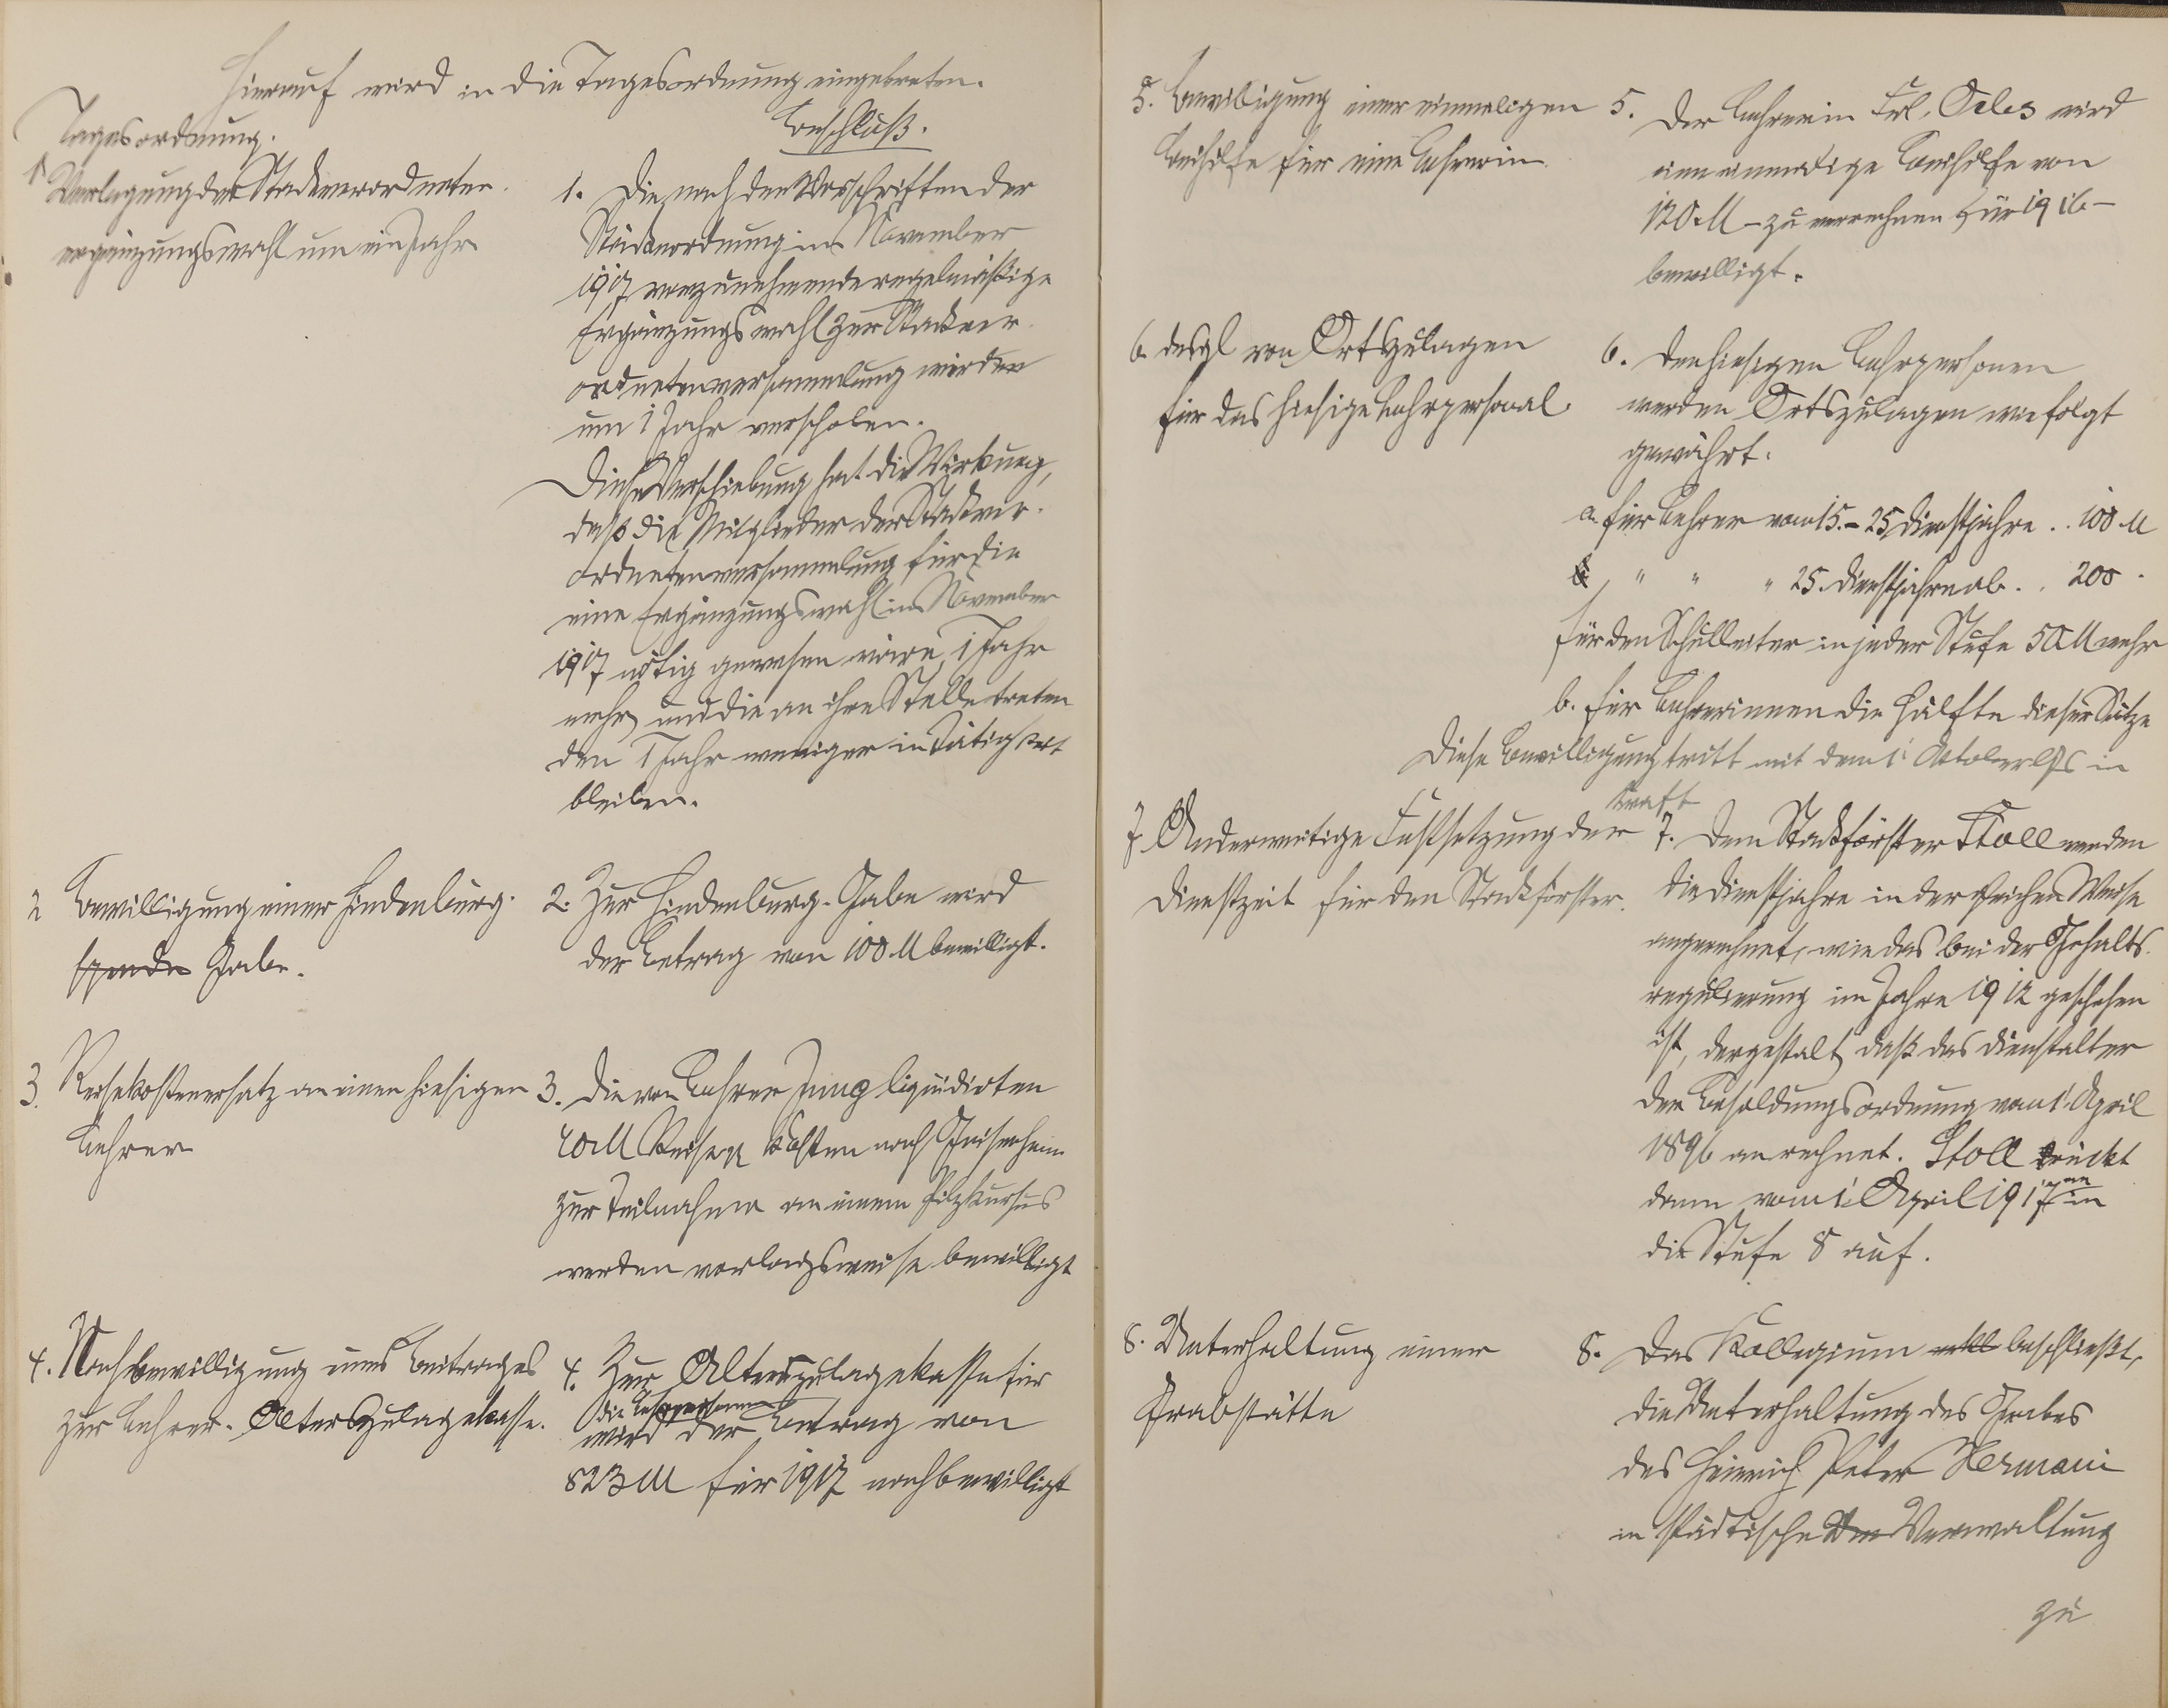 Hierauf wird in die Tagesordnung eingetreten.
Tagesordnung.
1 Verlegung der Stadtverordneten-
ergänzungswahl um ein Jahr
Beschluß.
1. Die nach den Vorschriften der
Städteordnung im November
1917 vorzunehmende regelmäßige
Ergänzungswahl zur Stadtver-
ordnetenversammlung wird
um 1 Jahr verschoben.
Diese Verschiebung hat die Wirkung,
daß die Mitglieder der Stadtver-
ordnetenversammlung für die
eine Ergänzungswahl im November
1917 nötig gewesen wäre, 1 Jahr
mehr und die an ihre Stelle treten
den 1 Jahr weniger in Tätigkeit
bleiben.
2 Bewilligung einer Hindenburg-
spende Gabe.
2. Zur Hindenburg-Gabe wird
der Betrag von 100 M bewilligt.
3. Reisekostenersatz an einen hiesigen
Lehrer
3. Die von Lehrer Jung liquidirten
40 M Reise kosten nach Geisenheim
zur Teilnahme an einem Pilzkursus
werden vorlagsweise bewilligt
4. Nachbewilligung eines Beitrages
zur Lehrer-Alterszulagekasse.
4. Zur Alterszulagekasse für
die Lehrpersonen
wird der Betrag von
823 M für 1917 nachbewilligt
5. Bewilligung einer einmaligen
Beihilfe für eine Lehrerin
5. Der Lehrerin Frl. Oelos wird
eine einmalige Beihilfe von
120 M – zu verrechnen für 1916 –
bewilligt.
6. desgl von Ortszulagen
für das hiesige Lehrpersonal.
6. Den hiesigen Lehrpersonen
werden Ortszulagen wie folgt
gewährt.
a. für Lehrer vom 15.–25 Dienstjahre .. 100 M
" " " 25. Dienstjahre ab .. 200 .
für den Schulleiter in jeder Stufe 50 M mehr
b. für Lehrerinnen die Hälfte dieser Sätze
Diese Bewilligung tritt mit dem 1 Oktober in
Kraft
7 Anderweitige Festsetzung der
Dienstzeit für den Stadtförster.
7. Dem Stadtförster Stoll werden
die Dienstjahre in der gleichen Weise
angerechnet, wie das bei der Gehalts-
regulierung im Jahre 1912 geschehen
ist, dergestalt daß das Dienstalter
der Besoldungsordnung vom 1. April
1896 an rechnet. Stoll rückt
dann vom 1. April 1917 an in
die Stufe 8 auf.
8. Unterhaltung einer
Grabstätte
8. Das Kollegium beschließt,
die Unterhaltung des Grabes
des Heinrich Peter Hermani
in städtische Verwaltung
zu